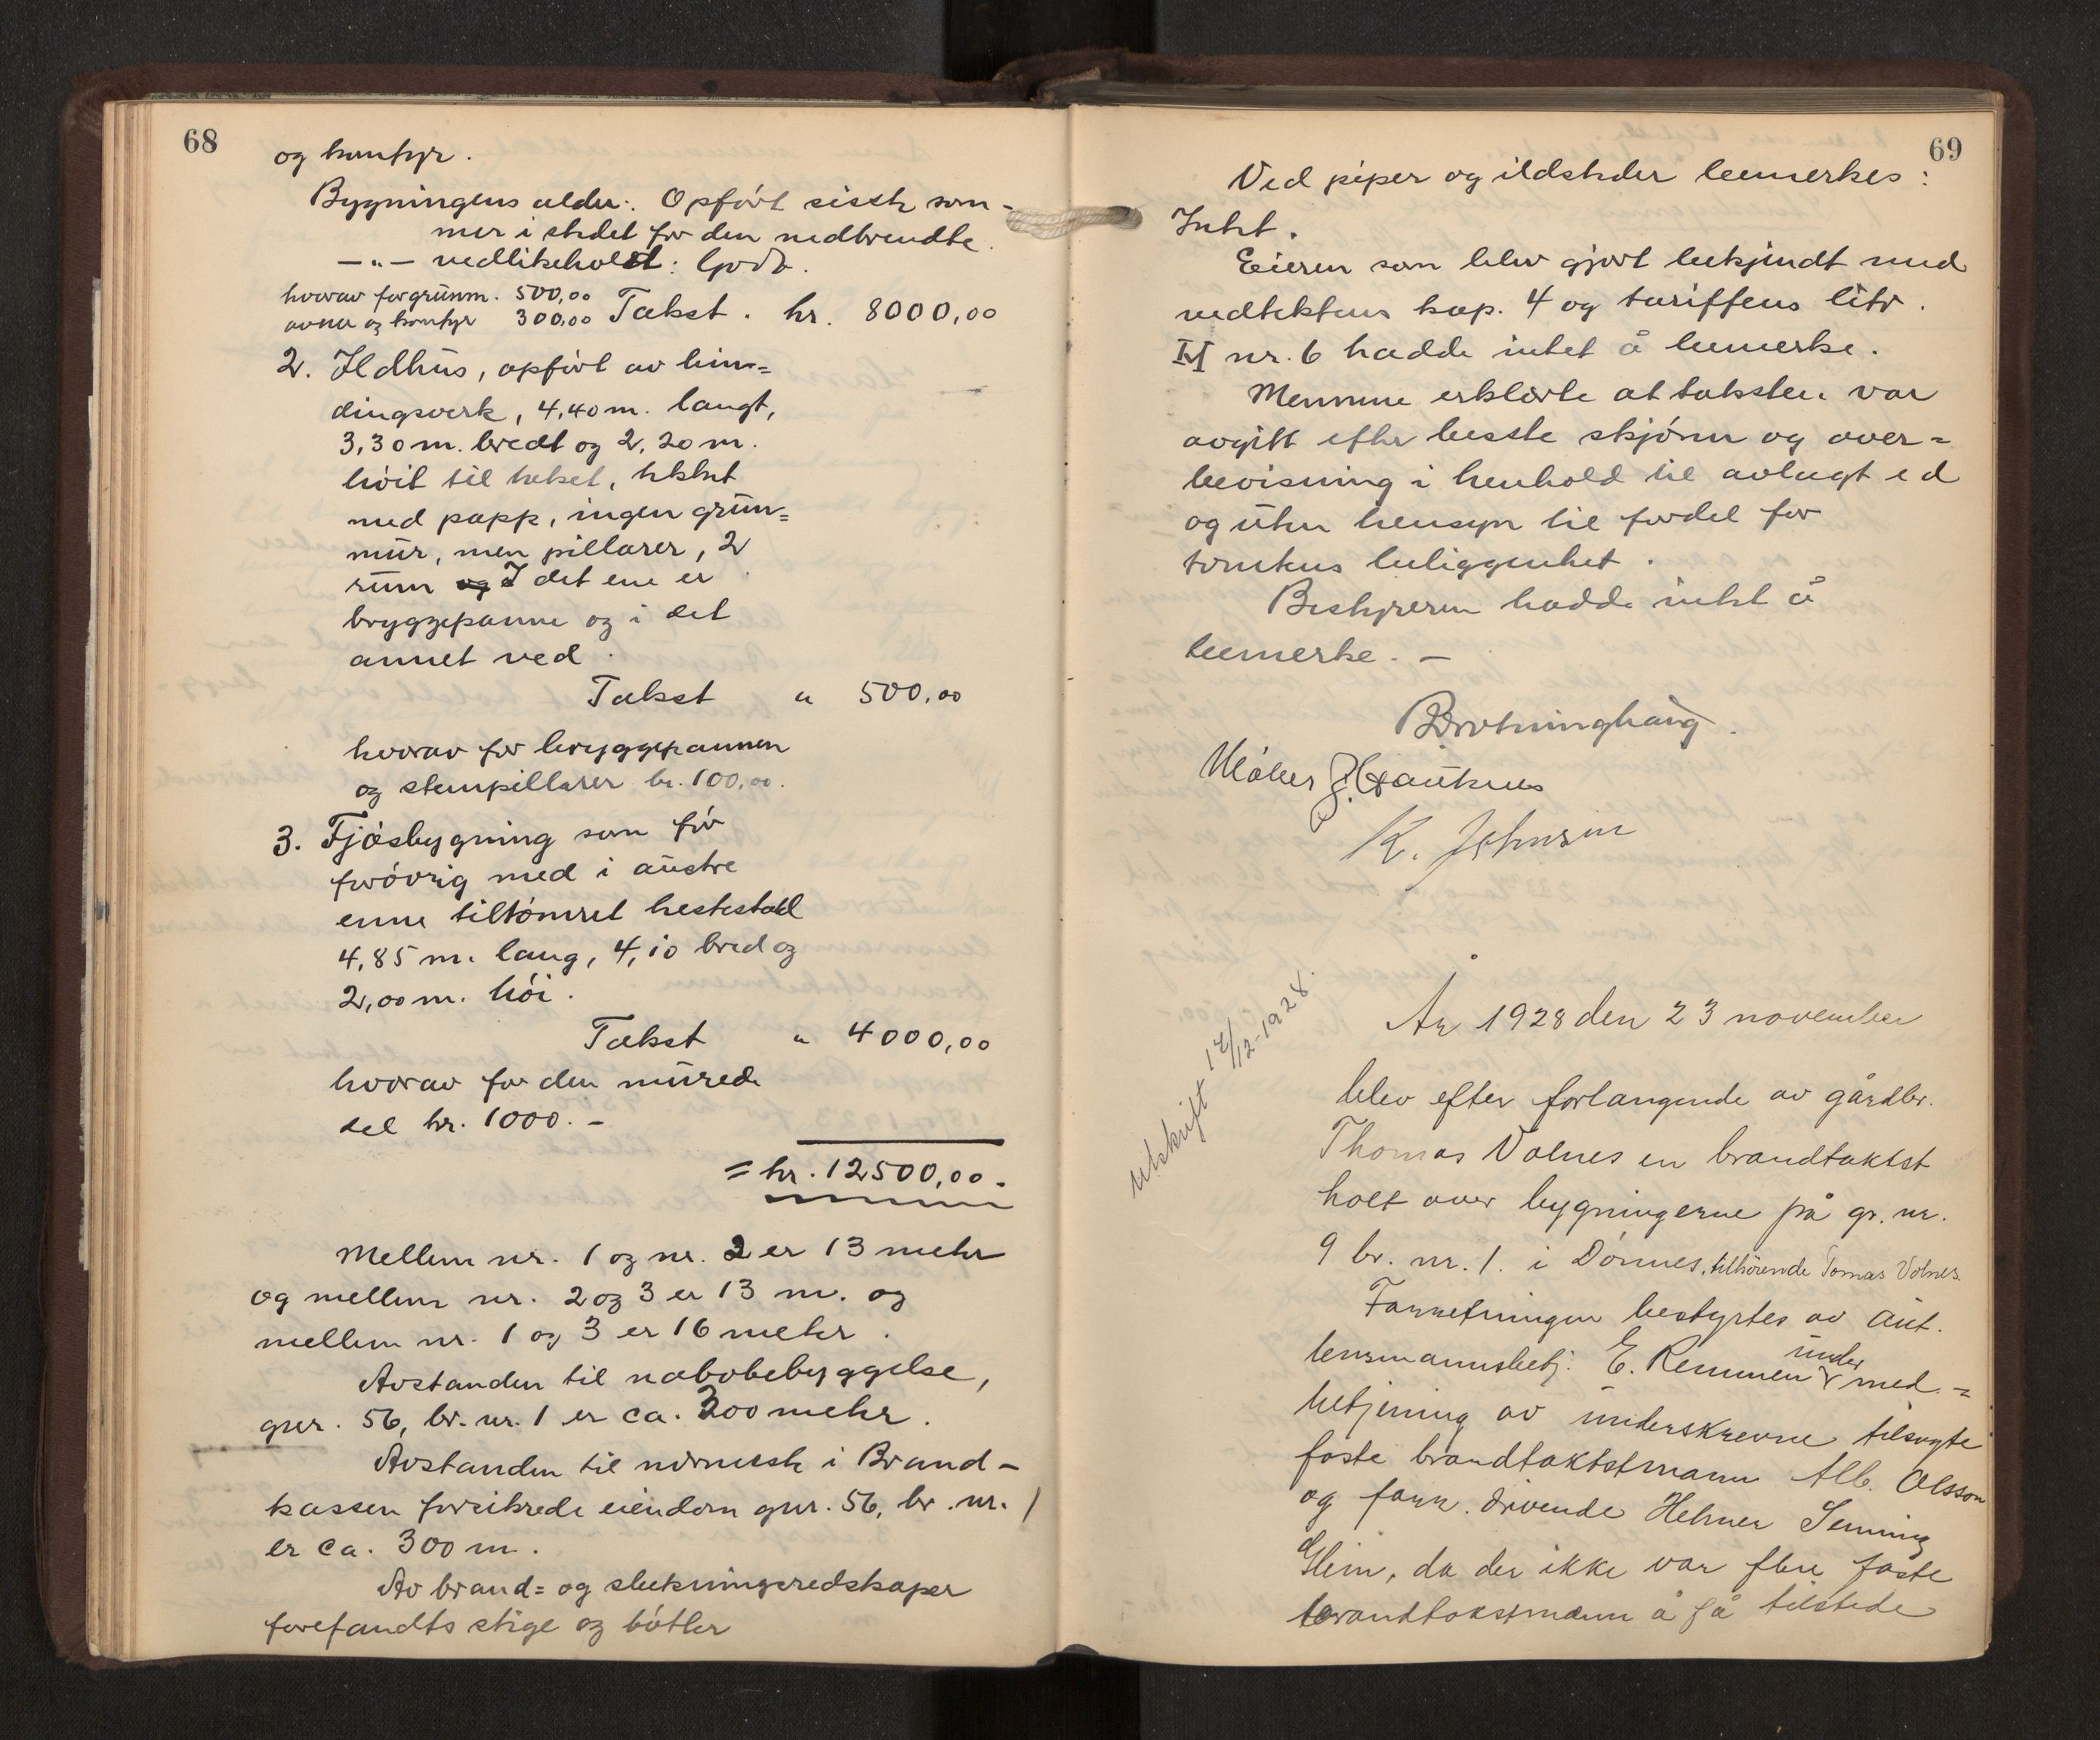 68
og komfyr.
Bygningens alder: Opført siste som-
mer i stedet for den nedbrendte.
—"— vedlikehold: Godt.
hvorav for grunm. 500,00
ovner og komfyr 300,00 Takst. kr. 8000,00
2. Ildhus, opført av bin=
dingsverk, 4,40 m. langt,
3,30 m. bredt og 2,20 m.
høit til taket, tekket
med papp, ingen grun=
mur, men pillarer, 2
rum og I det ene er
bryggepanne og i det
annet ved.
Takst " 500,00
hvorav for bryggepannen
og stenpillarer kr. 100,00.
3. Fjøsbygning som før
forøvrig med i austre
enne tiltømret hestestald
4,85 m. lang, 4,10 bred og
2,00 m. høi.
Takst " 4000,00
hvorav for den murede
del kr. 1000.-
= kr. 12500,00.
Mellem nr. 1 og nr. 2 er 13 meter
og mellem nr. 2 og 3 er 13 m. og
mellem nr. 1 og 3 er 16 meter.
Avstanden til nabobebyggelse,
gnr. 56, br. nr. 1 er ca. 300 meter.
Avstanden til nærmeste i Brand-
kassen forsikrede eiendom gnr. 56, br. nr. 1
er ca. 300 m.
Av brand= og slukningsredskaper
forefandts stige og bøtter
69
Ved piper og ildsteder bemerkes:
Intet.
Eieren som blev gjort bekjendt med
vedtektens kap. 4 og tariffens litr.
M nr. 6 hadde intet å bemerke.
Mennene erklærte at taksten var
avgitt efter beste skjønn og over=
bevisning i henhold til avlagt ed
og uten hensyn til fordel for
tomtens beliggenhet.
Bestyreren hadde intet å
bemerke. -
Drotninghaug.
J. Gautenes
K. Johnsen
utskrift 17/12-1928.
År 1928 den 23 november
blev efter forlangende av gårdbr.
Thomas Volnes en brandtaktst
holt over bygningerne på gr. nr.
9 br. nr. 1. i Dønnes, tilhørende Tomas Volnes.
Forretningen bestyrtes av aut.
lensmannsbetj. E. Remmen under med-
betjening av underskrevne tilsagte
faste brandtaktstmann Alb. Olsson
og forr. drivende Helmer Senning
Glein, da der ikke var flere faste
brandtakstmænn å få tilstede